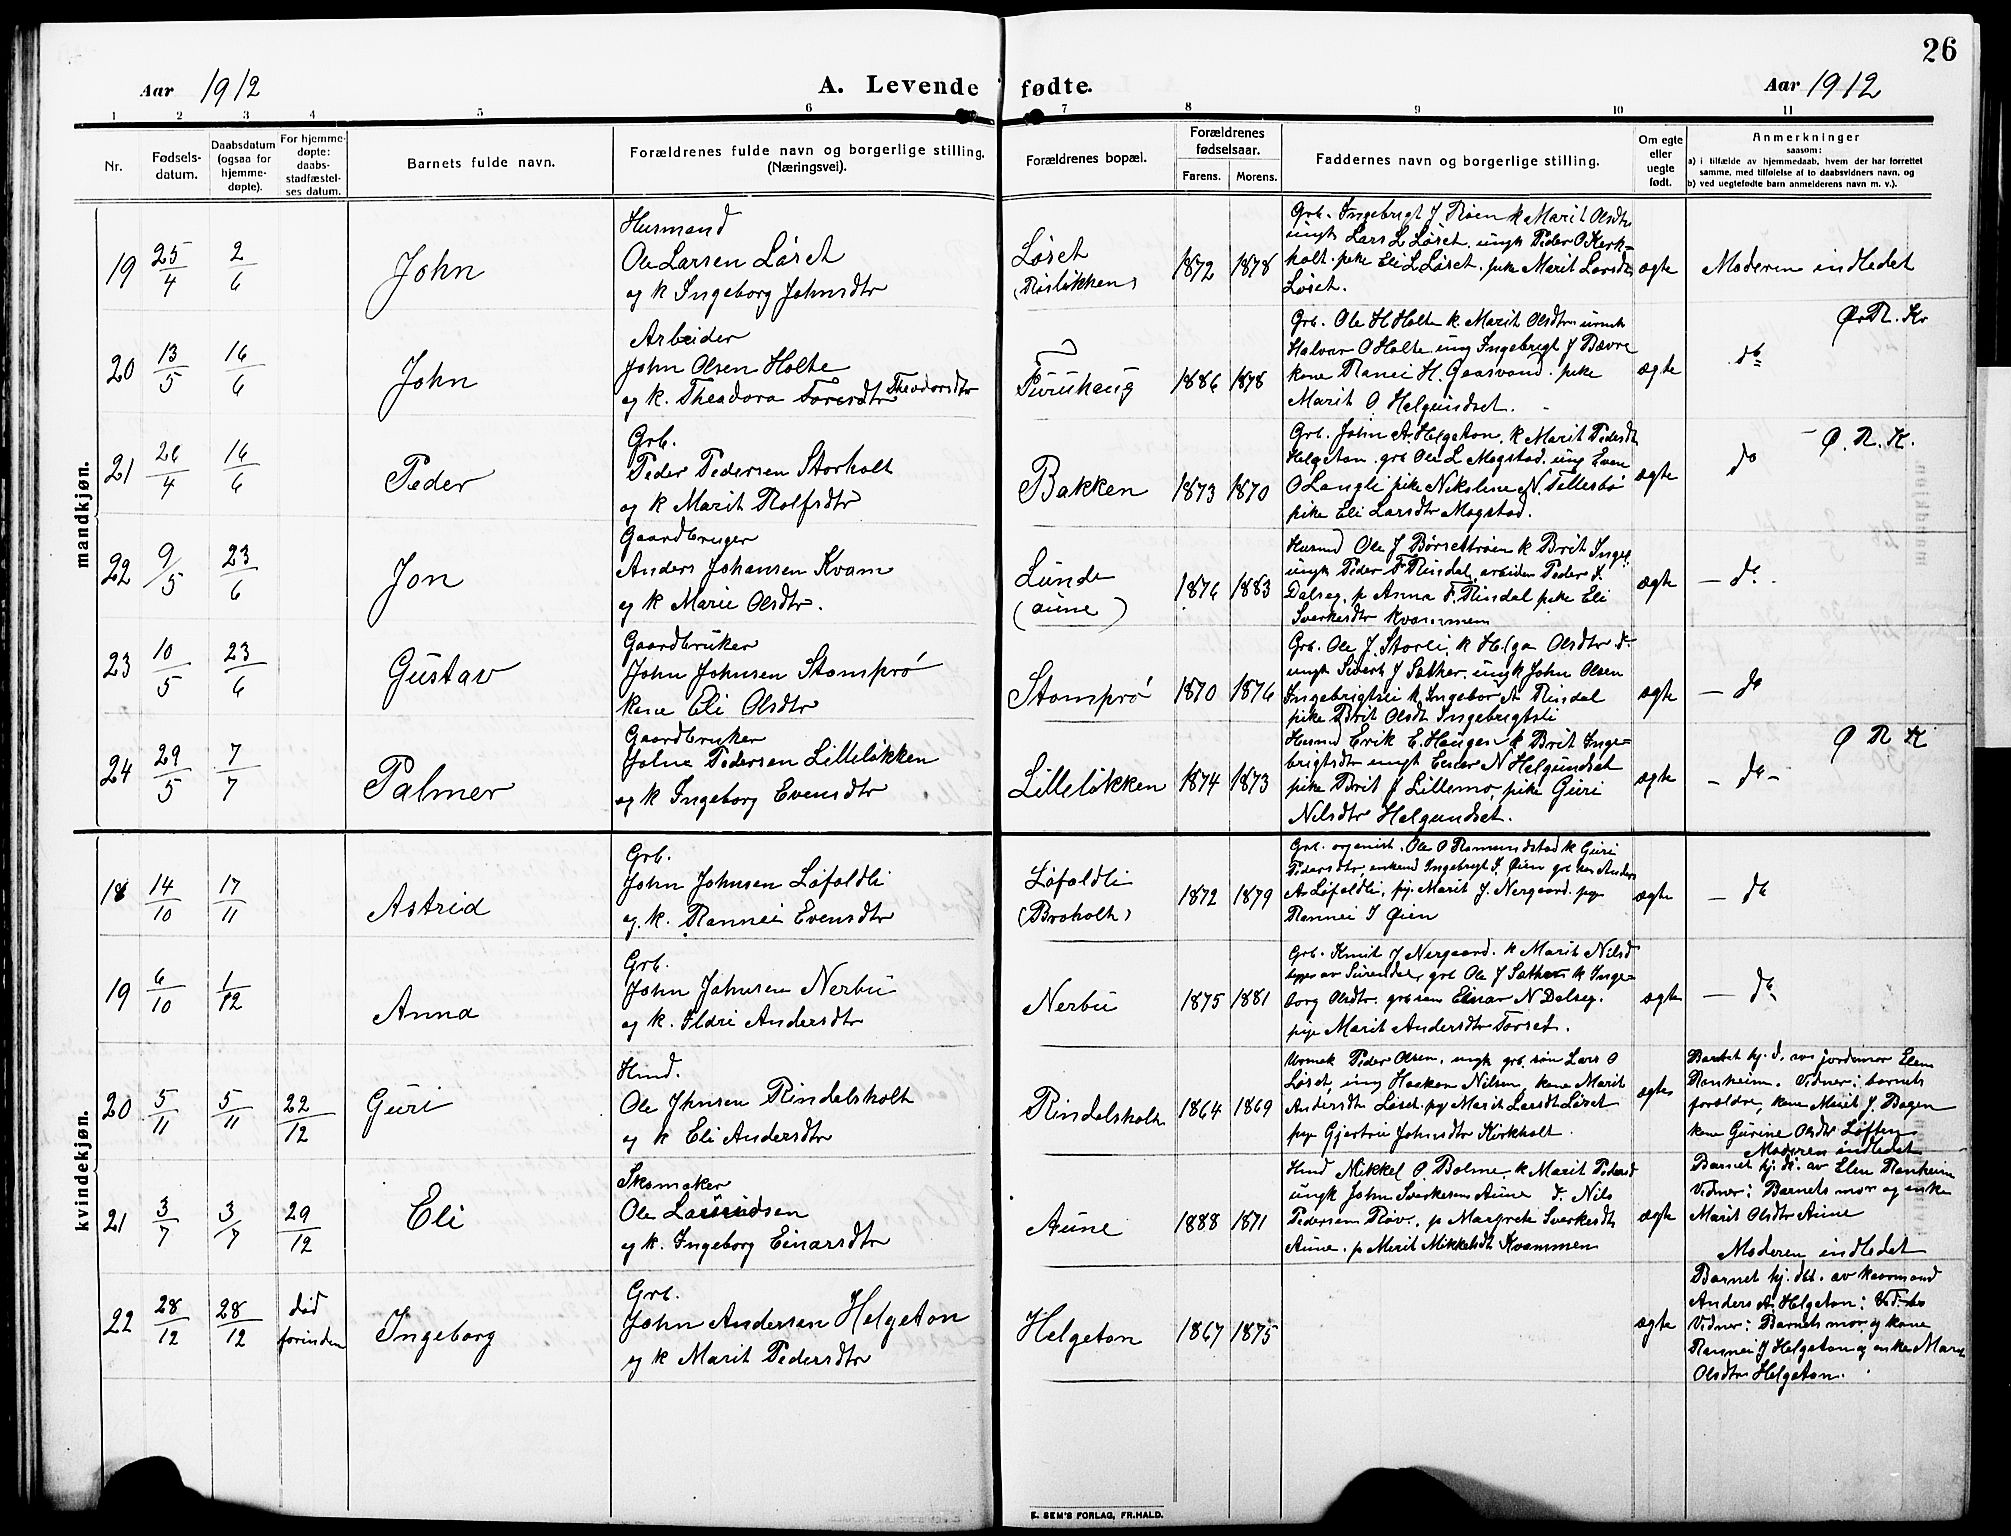 26
Aar 1912
A. Levende fødte.
Aar 1912
1 2 3 4 5 6 7 8 9 10 11
Nr.
Fødsels-
datum.
Daabsdatum
(ogsaa for
hjemme-
døpte).
For hjemme-
døpte:
daabs-
stadfæstel-
ses datum.
Barnets fulde navn.
Forældrenes fulde navn og borgerlige stilling.
(Næringsvei).
Forældrenes bopæl.
Forældrenes
fødselsaar.
Farens. Morens.
Faddernes navn og borgerlige stilling.
Om egte
eller
uegte
født.
Anmerkninger
saasom:
a) i tilfælde av hjemmedaab, hvem der har forrettet
samme, med tilføielse af to daabsvidners navn, og
b) ved uegtefødte barn anmelderens navn m. v.).
mandkjøn.
19 25/4 2/6 John
Husmand
Ole Larsen Løset
og k Ingeborg Johnsdtr
Løset
1872 1878
Grb. Ingebrigt J Røen k Marit Olsdtr
ungk Lars L Løset. ungk Peder O Kirk-
holt. pike Eli L Løset. pike Marit Larsdtr
Løset.
ægte
Moderen indledet
20 13/5 16/6 John
Arbeider
John Olsen Holte
og k. Theodora Theodorsdtr
Furuhaug
1886 1878
Grb. Ole H Holte k. Marit Olsdtr
Halvar O Holte. ung Ingebrigt J Bævre
kone Ranei H. Gaasvand. pike
Marit O Helgundset.
ægte
do
Ø. R. K.
21 26/4 16/6 Peder
Grb.
Peder Pedersen Storholt
og k Marit Rolfsdtr
Bakken
1873 1870
Grb. John A. Helgeton. k Marit Pedersdtr
Helgeton. grb Ole L Mogstad. ung Even
O Langli pike Nikoline N. Tellesbø
pike Eli Larsdtr Mogstad.
ægte
do
Ø. R. K.
22 9/5 23/6 Jon
Gaardbruger
Anders Johansen Kvam
og k Marie Olsdtr.
Lunde
(Aune)
1876 1883
Husmd Ole J Børsetrøen k Brit Inge
ungk Peder F Rindal, arbeider Peder
Dalseg. p Anna F. Rindal pike Eli
Sverkesdtr Kvammen
ægte
— do
23 10/5 23/6 Gustav
Gaardbruker
John Johnsen Stomprø
kone Eli Olsdtr
Stomprø
1870 1876
Grb. Ole J. Storli, k Helga Olsdtr
ungk Sivert J Sæther. ungk John Olsen
Ingebrigtsli k Ingebor Rindal
pike Brit Olsdt Ingebrigtsli
ægte
— do
24 29/5 7/7 Palmer
Gaardbruker
Johne Pedersen Lilleløkken
og k Ingeborg Evensdtr
Lilleløkken
1874 1873
Husmd Erik E. Haugen k Brit Inge-
brigtsdtr ungk Einar N Helgundset
pike Brit J Lillemo, pike Guri
Nilsdtr Helgundset.
ægte
— do —
Ø R K
kvindekjøn.
18 14/10 17/11 Astrid
Grb.
John Johnsen Løfaldli
og k. Rannei Evensdtr
Løfaldli
(Broholt)
1872 1879
Grb. organist. Ole O Romundstad k Guri
Pedersdtr, enkemd Ingebrigt J. Øien Anders
A Løfaldli, pige Marit J. Nergaard. pige
Rannei J Øien
ægte
— do
19 6/10 1/12 Anna
Grb.
John Johnsen Nerbu
og k. Ildri Andersdtr
Nerbu
1875 1881
Grb. Knut J Nergaard. k Marit Nilsd
av Surendal, grb Ole J Sæther k Inge-
borg Olsdtr. grb søn Einar N Dalseg.
pige Marit Andersdtr Torset.
ægte
— do
20 5/11 5/11 22/12 Guri
Hmd.
Ole Jhnsen Rindalsholt
og k Eli Andersdtr
Rindalsholt
1864 1869
Urmak Peder Olsen, ungk grb. søn Lars O
Løset, ung Haaken Nilsen, kone Marit
Andersdtr Løset. pg Marit Larsdt Løset
pige Gjertru Johnsdtr Kirkholt.
ægte
Barnet hj. d. av jordemor Elen
Ranheim. Vidner: barnets
forældre, kone Marit J. Bagen
kone Gurine Olsdtr Løften
Moderen indledet
21 3/7 3/7 29/12 Eli
Skomaker
Ole Lausridsen
og k. Ingeborg Einarsdtr
Aune
1888 1871
Hmd Mikkel O Bolme, k Marit Pedersd
ungk John Sverkesen Aune d. Nils
Pedersen Røv. p Margrete Sverkesdtr
Aune. p Marit Mikkelsdt Kvammen
ægte
Barnet hj. d. av Elen Ranheim
Vidner: Barnets mor og enke
Marit Olsdtr Aune
Moderen indledet
22 28/12 28/12 død forinden Ingeborg
Grb.
John Andersen Helgeton
og k Marit Pedersdtr
Helgeton
1867 1875
ægte
Barnet hj. dbt. av kaarmand
Anders A. Helgeton:
Vidner: Barnets mor, og kone
Rannei J Helgeton og enke Marit
Olsdtr Helgeton.
E. SEM'S FORLAG, FR.HALD.